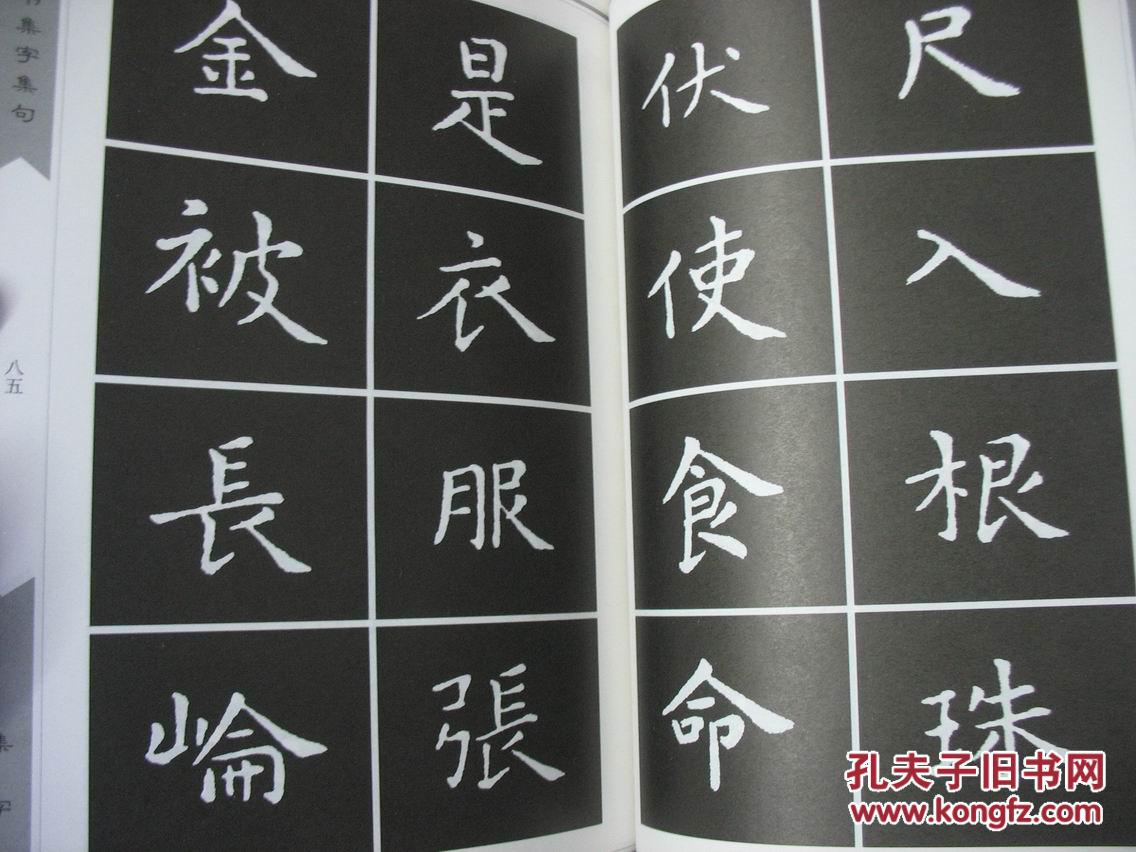 尺入根珠
伏使食命
是衣服張
金被長崘
书集字集句
八五
集字
孔夫子旧书网
www.kongfz.com